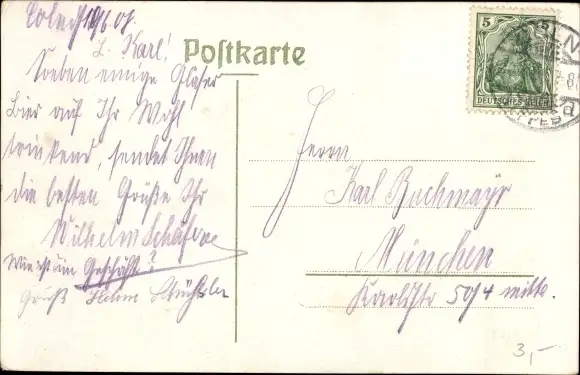 L. Karl!
Soeben einige Gläser
Bier auf Ihr Wohl
trinkend, sendet Ihnen
die besten Grüße Ihr
Wilhelm Schäfer
Wie ist im Geschäft?
Gruß
Postkarte
5
DEUTSCHES REICH
Herrn
Karl Buchmayr
München
Karlstr 50/4 mitte.
3,-